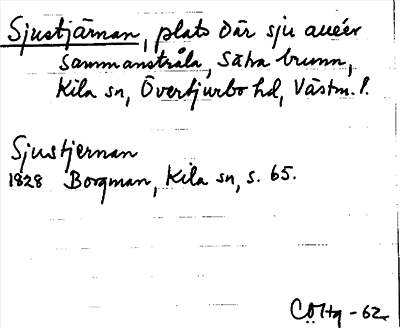 Sjustjärnan, plats där sju alléer
sammanstråla, Sätra brunn,
Kila sn, Övertjurbo hd, Västm. l.
Sjustjernan
1828 Borgman, Kila sn, s. 65.
CÖHg -62